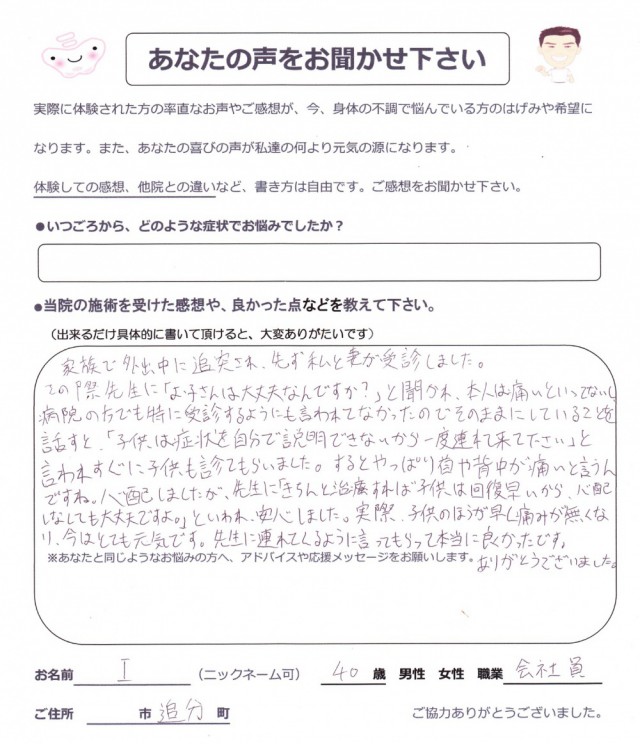 あなたの声をお聞かせ下さい
実際に体験された方の率直なお声やご感想が、今、身体の不調で悩んでいる方のはげみや希望に
なります。また、あなたの喜びの声が私達の何より元気の源になります。
体験しての感想、他院との違いなど、書き方は自由です。ご感想をお聞かせ下さい。
●いつごろから、どのような症状でお悩みでしたか？
●当院の施術を受けた感想や、良かった点などを教えて下さい。
（出来るだけ具体的に書いて頂けると、大変ありがたいです）
家族で外出中に追突され、先ず私と妻が受診しました。
その際先生に「お子さんは大丈夫なんですか？」と聞かれ、本人は痛いといってないし
病院の方でも特に受診するようにも言われてなかったのでそのままにしていることを
話すと、「子供は症状を自分で説明できないから一度連れて来て下さい」と
言われすぐに子供も診てもらいました。するとやっぱり首や背中が痛いと言うん
ですね。心配しましたが、先生に「きちんと治療すれば子供は回復早いから、心配
しなくても大丈夫ですよ。」といわれ、安心しました。実際、子供のほうが早く痛みが無くな
り、今はとても元気です。先生に連れてくるように言ってもらって本当に良かったです。
※あなたと同じようなお悩みの方へ、アドバイスや応援メッセージをお願いします。
ありがとうございました。
お名前 I （ニックネーム可） 40 歳 男性 女性 職業 会社員
ご住所 市 追分 町 ご協力ありがとうございました。